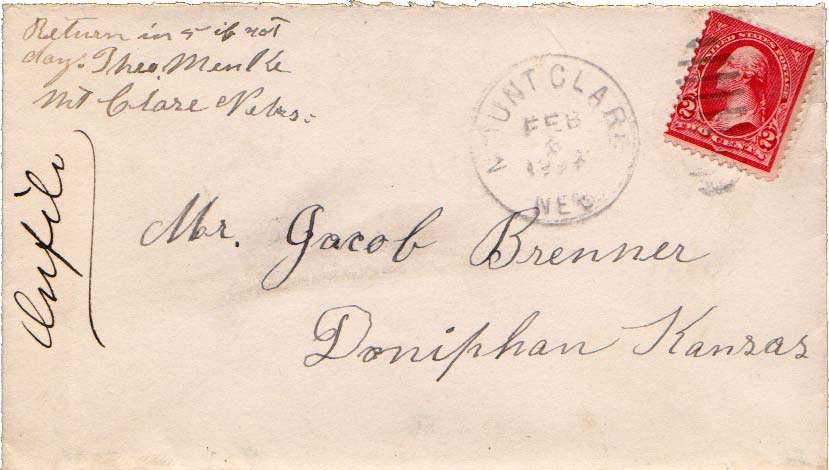 Return in 5 if not
days. Theo. Menke
Mt Clare Nebr.
MOUNT CLARE
FEB
NEB
UNITED STATES POSTAGE
2 2
TWO CENTS
Mr. Jacob Brenner
Doniphan Kansas